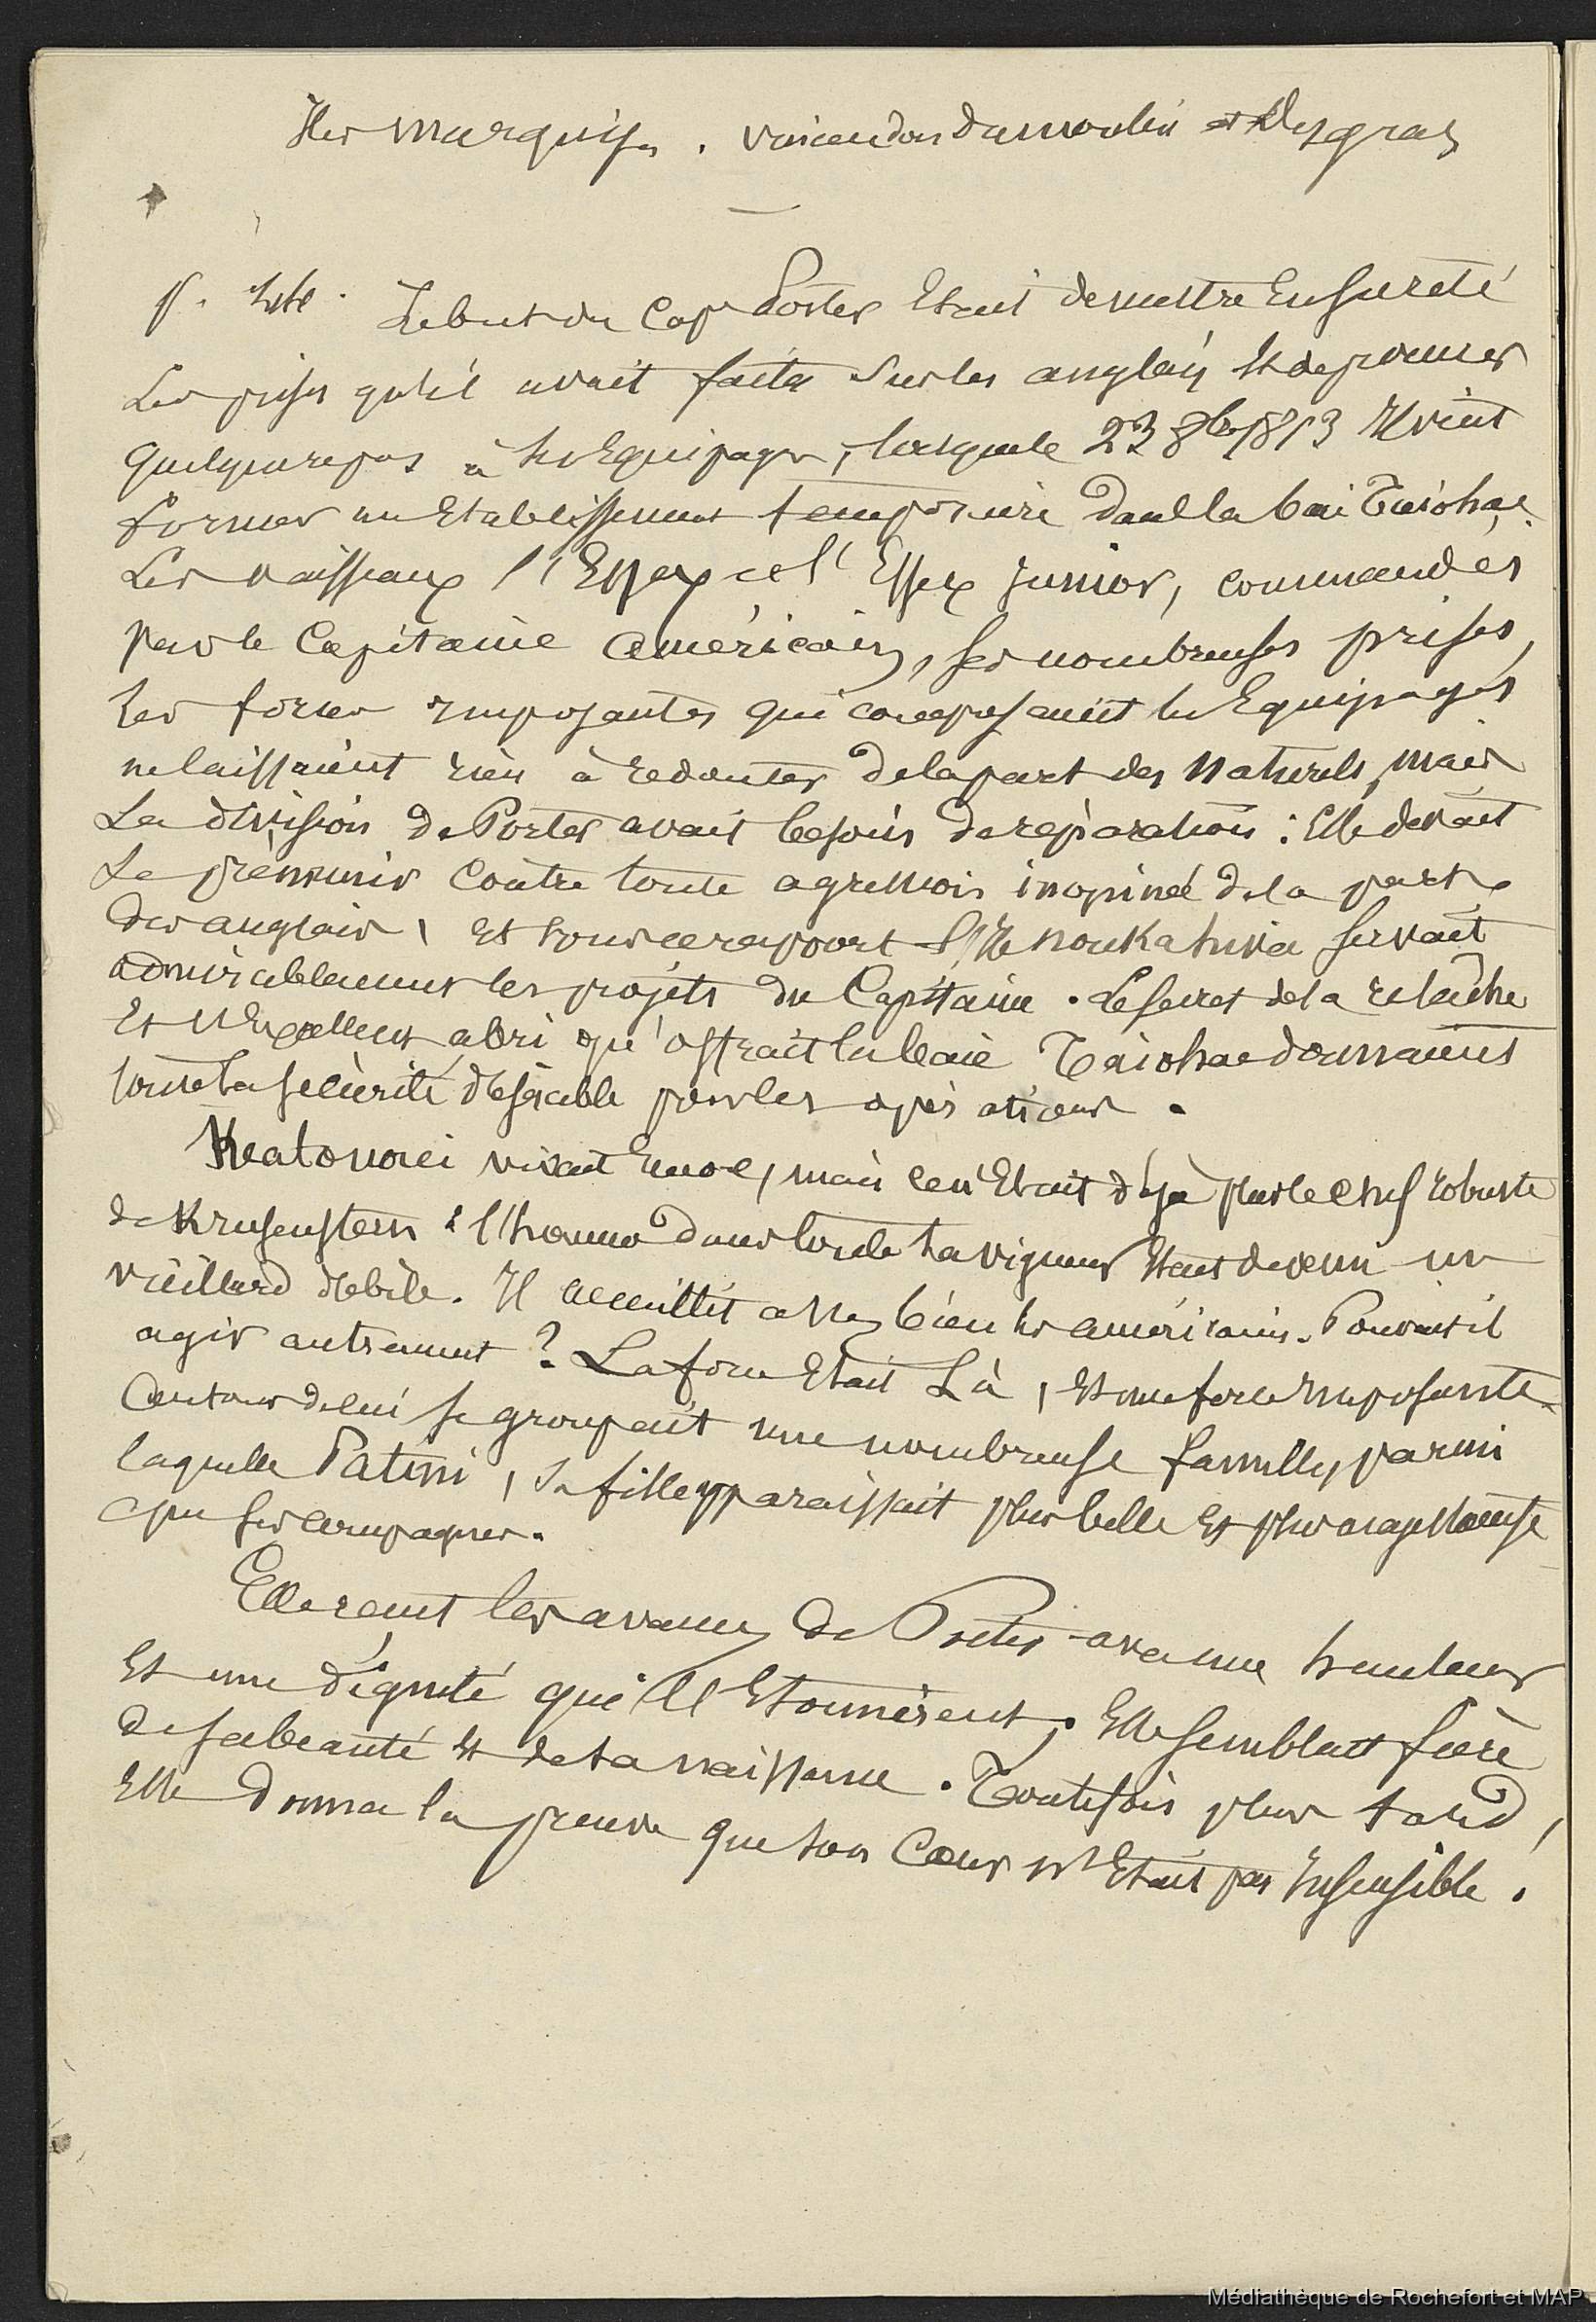 Iles Marquises. Vincendon Dumoulin et Desgraz
p. Le but du Cap Porter Etait de mettre En sureté
Les prises qu'il avait faites Sur les anglais Et de donner
quelque repos à ses Equipages, lorsque le 23 8bre 1813 Il vint
former un Etablissement temporaire dans la baie Taiohae.
Les vaisseaux l'Essex et l'Essex junior, commandés
par le Capitaine Américain, ses nombreuses prises,
les forces Imposantes qui composaient les Equipages
ne laissaient rien à redouter de la part des Naturels, mais
La division de Porter avait besoin de réparations : Elle devait
Se prémunir Contre toute agression inopinée de la part
des anglais, et sous ce rapport l'Ile Noukahiva servait
admirablement les projets du Capitaine. Le secret de la relâche
Et l'Excellent abri qu'offrait la baie Taiohae donnaient
toute la sécurité désirable pour les opérations.
Keatonouï vivait Encore, mais ce n'Etait déjà plus le chef robuste
de Krusenstern : l'homme dans toute sa vigueur Etait devenu un
vieillard débile. Il accueillit assez bien les américains. Pouvait-il
agir autrement ? La force Etait Là, Et une force Imposante.
Autour de lui se groupait une nombreuse famille, parmi
laquelle Patini, sa fille apparaissait plus belle Et plus majestueuse
que ses compagnes.
Elle reçut les avances de Porter avec une hauteur
Et une dignité qui l'Etonnèrent ; Elle semblait fière
de sa beauté Et de sa naissance. Toutefois plus tard,
Elle donna la preuve que son Cœur n'Etait pas Insensible.
Médiathèque de Rochefort et MAP